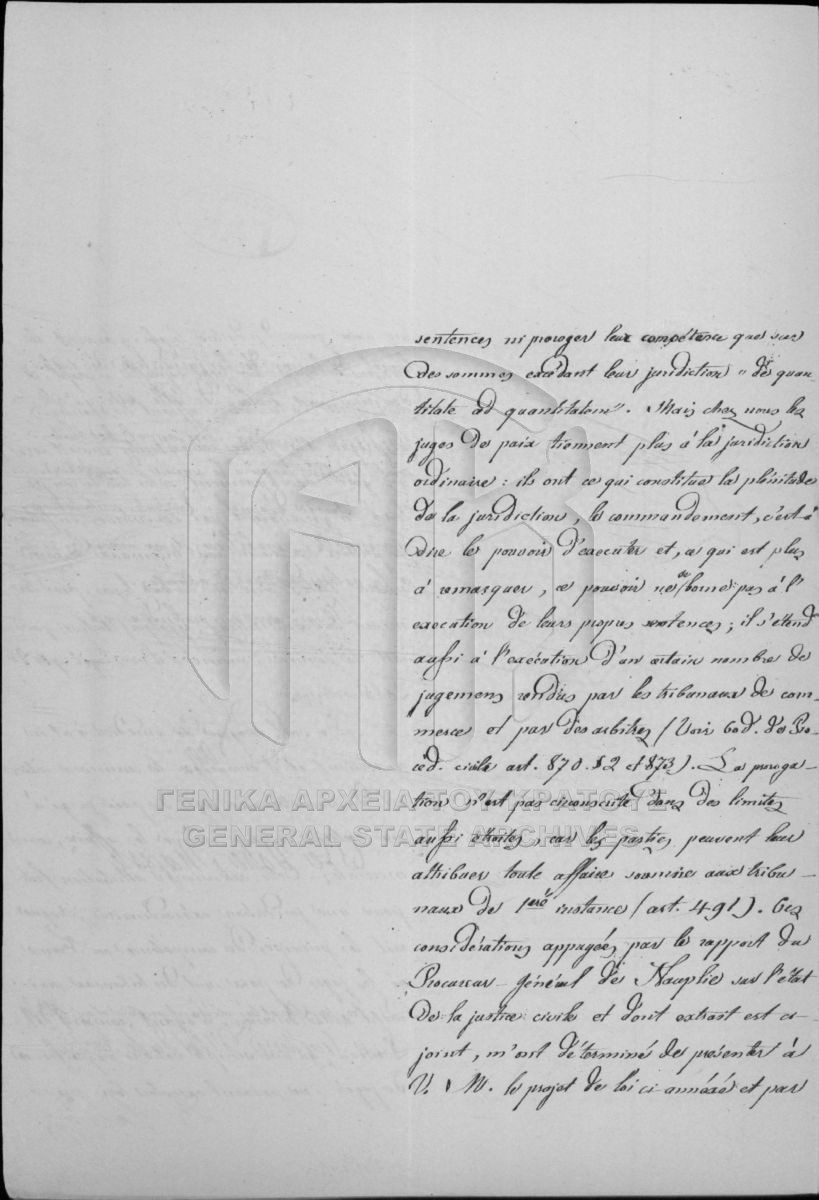 sentences ni proroger leur compétence que sur
des sommes excédant leur juridiction „ de quan
titate ad quantitatem". Mais chez nous les
juges de paix tiennent plus à la juridiction
ordinaire : ils ont ce qui constitue la plénitude
de la juridiction, le commandement, c'est-à
dire le pouvoir d'executer et, ce qui est plus
à remarquer, ce pouvoir ne se borne pas à l'
execution de leurs propres sentences; il s'étend
aussi à l'exécution d'un certain nombre de
jugemens rendus par les tribunaux de com-
merce et par des arbitres (Voir Cod. de Pro
ced. civile art. 870. §2 et 873). La proroga-
tion n'est pas circonscrite dans des limites
aussi étroites, car les parties peuvent leur
attribuer toute affaire soumise aux tribu-
naux de 1ère instance (art. 491). Ces
considérations appuyées par le rapport du
Procureur-Général de Nauplie sur l'état
de la justice civile et dont extrait est ci-
joint, m'ont déterminé de présenter à
V. M. le projet de loi ci-annéxé et par
ΓΕΝΙΚΑ ΑΡΧΕΙΑ ΤΟΥ ΚΡΑΤΟΥΣ
GENERAL STATE ARCHIVES